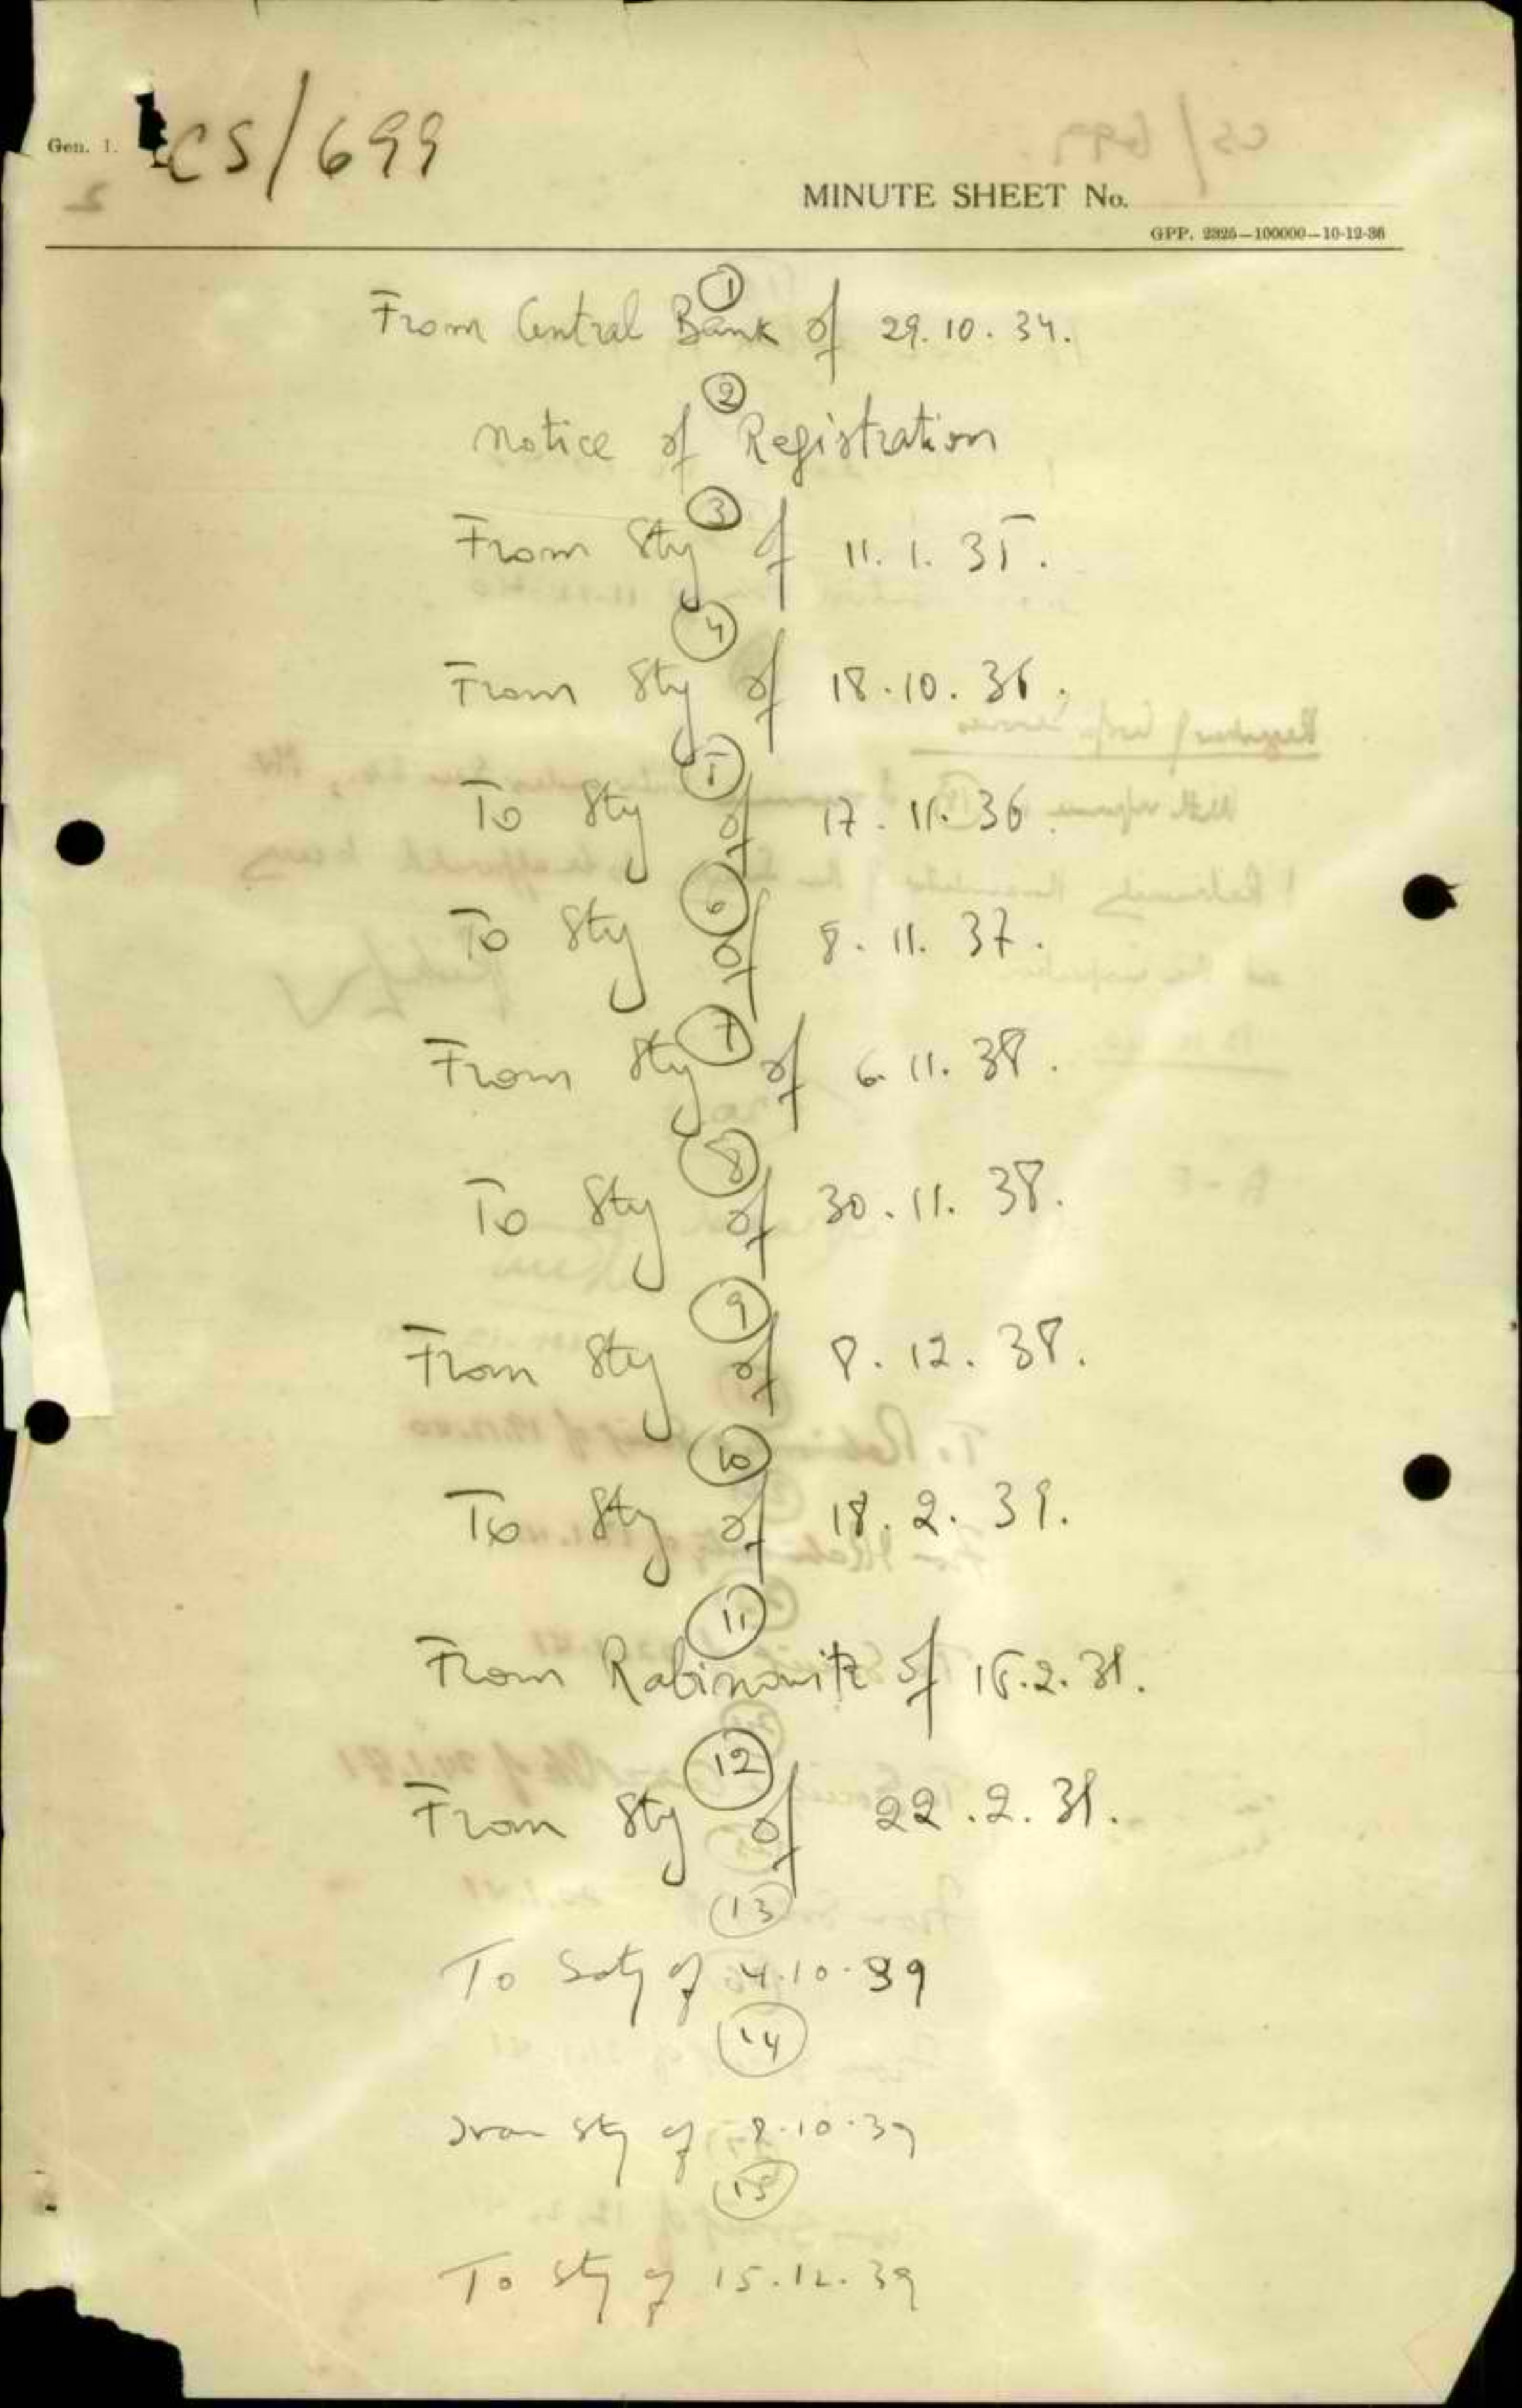 Gen. 1.
CS/699
MINUTE SHEET No.
GPP. 2325—100000—10-12-36
1
From Central Bank of 29.10.34.
2
Notice of Registration
3
From Sty of 11.1.35.
4
From Sty of 18.10.36.
5
To Sty of 17.11.36.
6
To Sty of 8.11.37.
7
From Sty of 6.11.38.
8
To Sty of 30.11.38.
9
From Sty of 8.12.38.
10
To Sty of 18.2.39.
11
From Rabinowitz of 2.39.
12
From Sty of 22.2.39.
13
To Soty of 4.10.39
14
From Sty of 8.10.39
15
To Sty of 15.12.39